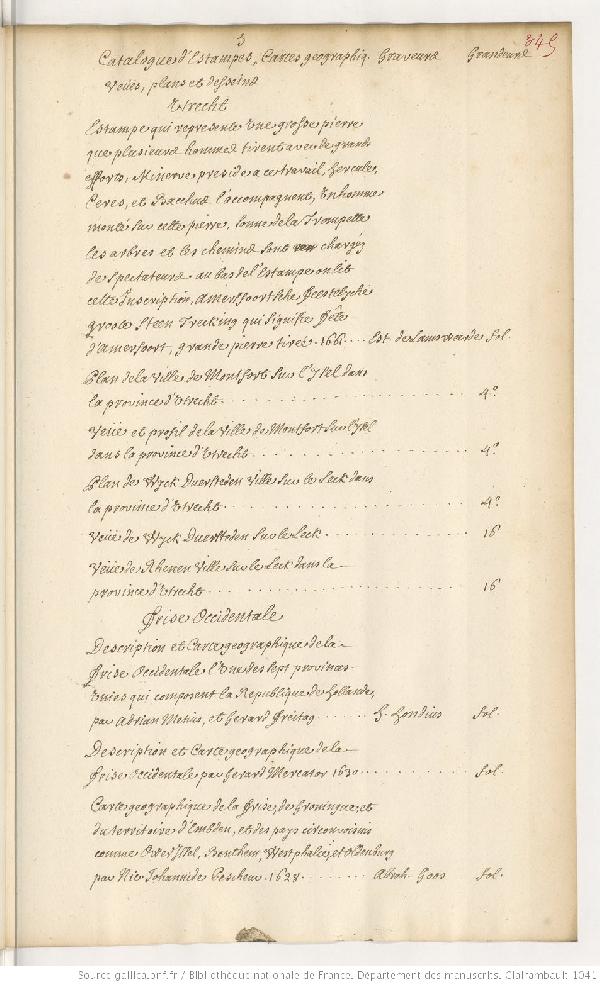 3
345
Catalogue d'Estampes, Cartes geographiq. Graveurs Grandeurs
Veües, plans et desseins
Utrecht
Estampe qui represente une grosse pierre
que plusieurs hommes tirent avec de grants
efforts, Minerve preside a ce travail, hercule,
Ceres, et Bacchus l'accompagnent, un homme
monté sur cette pierre, sonne de la Trompette
les arbres et les chemins sont chargéz
de spectateurs au bas de l'Estampe on lit
cette Inscription, Amersfoortsche Feestelyche
groote Steen Trecking qui signifie Fête
d'Amersfoort, grande pierre tirée. 1661 .... Est. de Lamsweerde fol.
Plan de la Ville de Montfort sur l'Yssel dans
la province d'Utrecht. . . . . . . . . . . 4.º
Veüe et profil de la Ville de Montfort sur l'yssel
dans la province d'Utrecht . . . . . . . . . . 4.º
Plan de Wyck Duersteden Ville sur le Leck dans
la province d'Utrecht . . . . . . . . . . . 4.º
Veüe de Wyck Duersteden sur le Leck . . . . . . . . 16
Veüe de Rhenen Ville sur le Leck dans la
province d'Utrecht . . . . . . . . . . . 16
Frise Occidentale
Description et Carte geographique de la
Frise Occidentale l'une des sept provinces
Unies qui composent la Republique de hollande,
par Adrian Metius, et Gerard Freitag . . . . . . H. Hondius fol.
Description et Carte geographique de la
Frise Occidentale par Gerard Mercator 1630 . . . . . . . . fol.
Carte geographique de la Frise, de Groningue, et
du territoire d'Embden, et des pays circonvoisins
comme OverYssel, Benthem, Westphalie, et Oldenburg
par Nic Johannide Pescheur. 1628 . . . . . . . . Abrah. Goos fol.
Source gallica.bnf.fr / Bibliothèque nationale de France. Département des manuscrits. Clairambault 1041